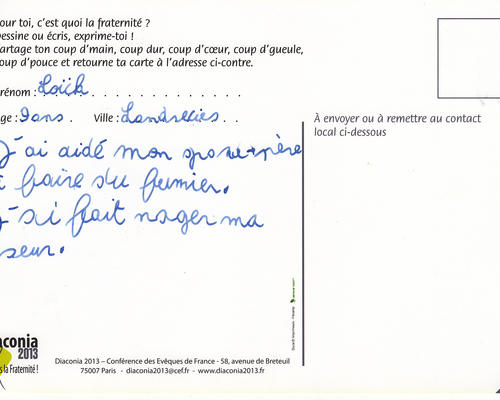 our toi, c'est quoi la fraternité ?
essine ou écris, exprime-toi !
artage ton coup d'main, coup dur, coup d'cœur, coup d'gueule,
oup d'pouce et retourne ta carte à l'adresse ci-contre.
rénom : Loïck
ge : 9 ans. Ville : Landrecies
J'ai aidé mon grand-père
faire du fumier.
J'ai fait nager ma
seur.
À envoyer ou à remettre au contact
local ci-dessous
aconia
2013
s la Fraternité !
Diaconia 2013 – Conférence des Evêques de France - 58, avenue de Breteuil
75007 Paris - diaconia2013@cef.fr - www.diaconia2013.fr